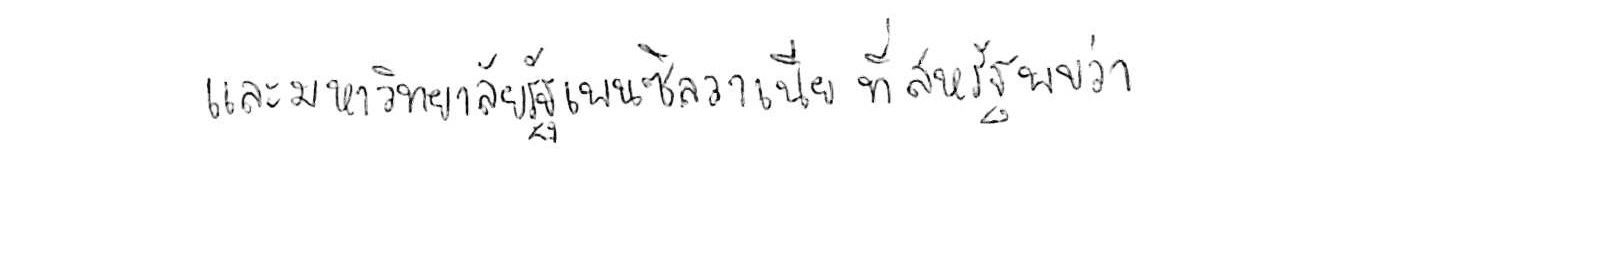 และมหาวิทยาลัยรัฐเพนซิลวาเนีย ที่สหรัฐพบว่า